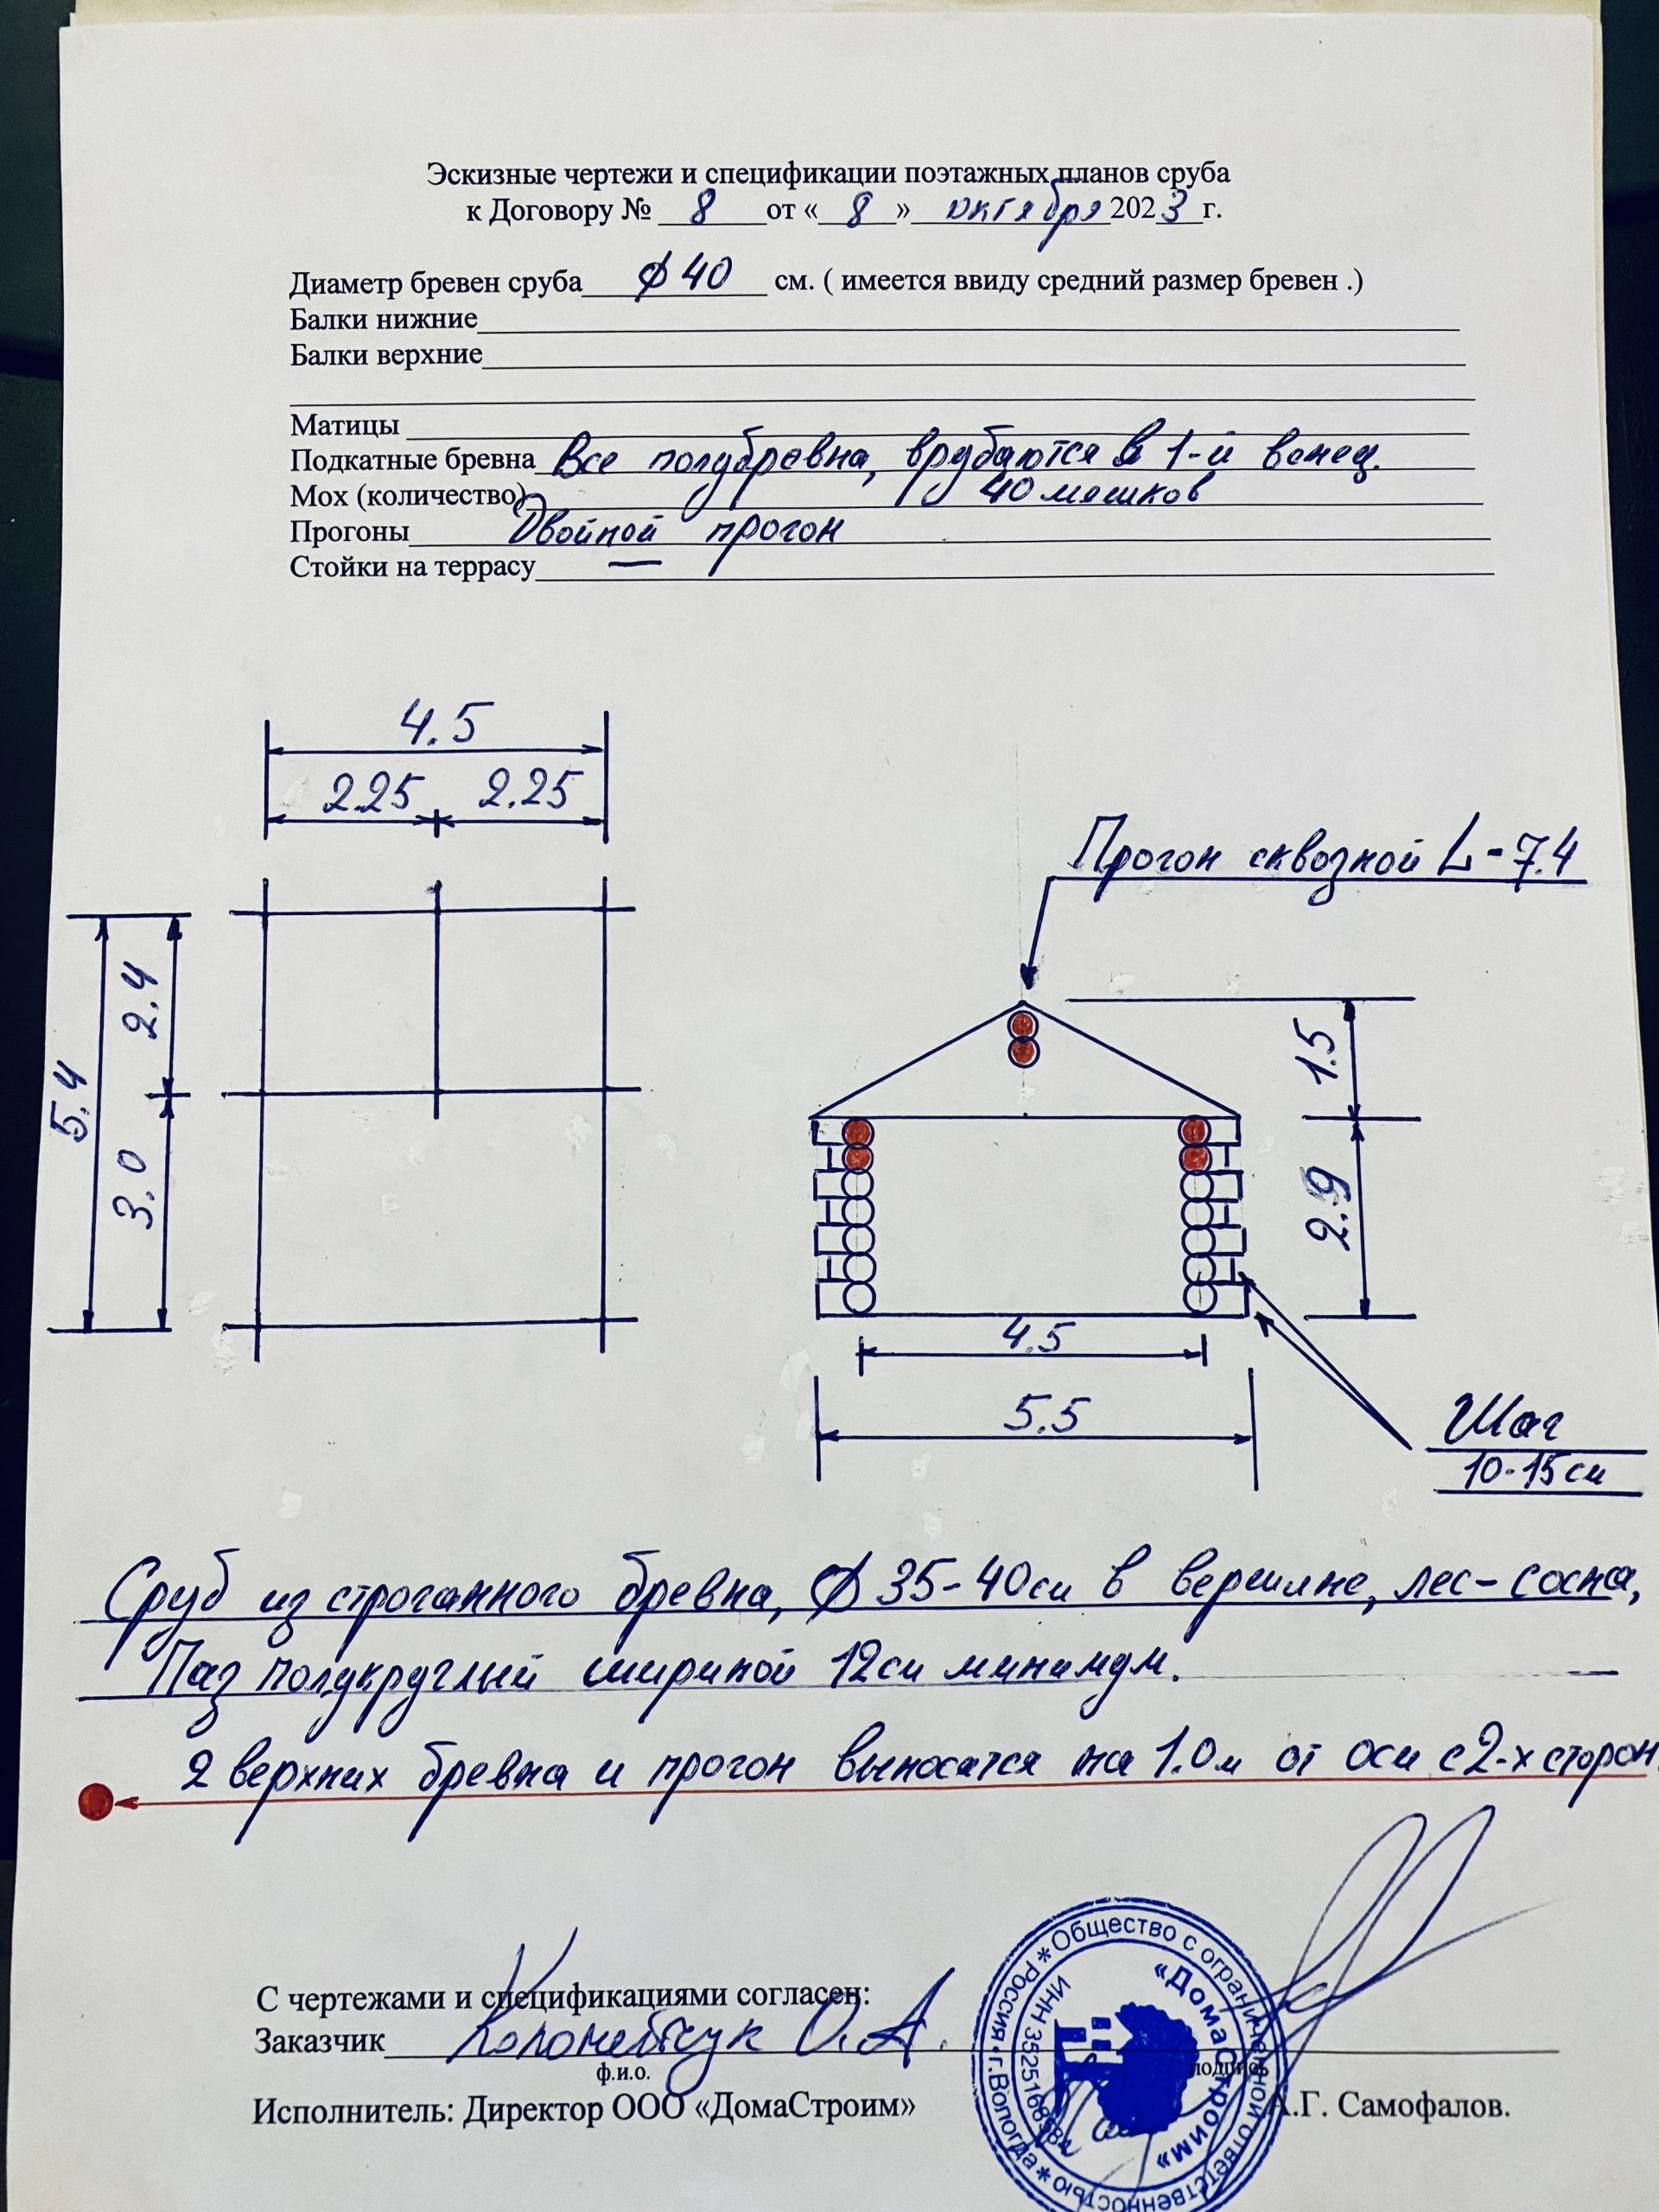 Эскизные чертежи и спецификации поэтажных планов сруба
к Договору № 8 от « 8 » октября 2023 г.
Диаметр бревен сруба ⌀ 40 см. ( имеется ввиду средний размер бревен .)
Балки нижние
Балки верхние
Матицы
Подкатные бревна Все полубревна, врубаются в 1-й венец.
Мох (количество) 40 мешков
Прогоны Двойной прогон
Стойки на террасу —
4.5
2.25 2.25
Прогон сквозной L-7.4
5.4
2.4
3.0
1.5
2.9
4.5
5.5
Шаг
10-15 см
Сруб из строганного бревна, ⌀ 35-40 см в вершине, лес-сосна,
Паз полукруглый шириной 12 см минимум.
2 верхних бревна и прогон выносятся на 1.0 м от оси с 2-х сторон.
С чертежами и спецификациями согласен:
Заказчик О.А.
ф.и.о. подпись
Исполнитель: Директор ООО «ДомаСтроим» А.Г. Самофалов.
Общество с ограниченной ответственностью * Россия г.Вологда *
«ДомаСтроим»
ИНН